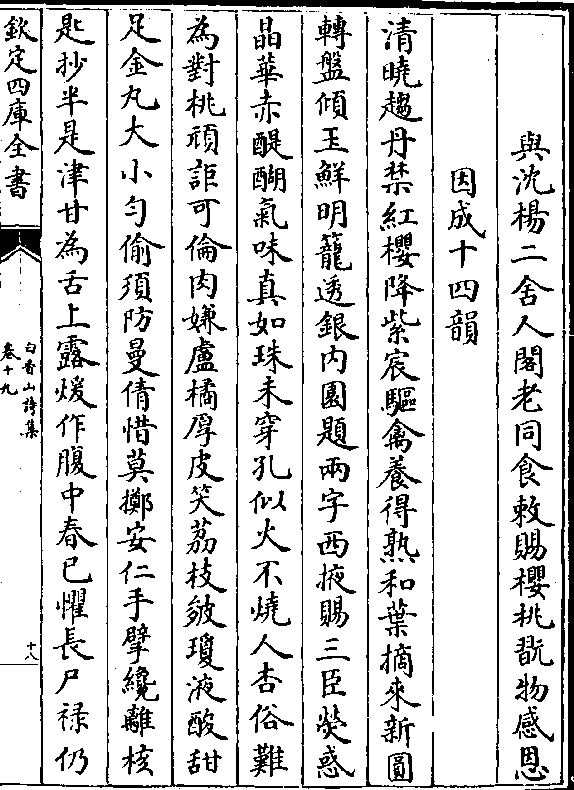 與沈楊二舍人閣老同食敕賜櫻桃翫物感恩
因成十四韻
清曉趨丹禁紅櫻降紫宸驅禽養得熟和葉摘來新圓
轉盤傾玉鮮明籠透銀内園題兩字西掖賜三臣熒惑
晶華赤醍醐氣味真如珠未穿孔似火不燒人杏俗難
為對桃頑詎可倫肉嫌盧橘厚皮笑荔枝皴瓊液酸甜
足金丸大小勻偷須防曼倩惜莫擲安仁手擘纔離核
匙抄半是津甘為舌上露煖作腹中春已懼長尸禄仍
欽定四庫全書
白香山詩集
卷十九
十八